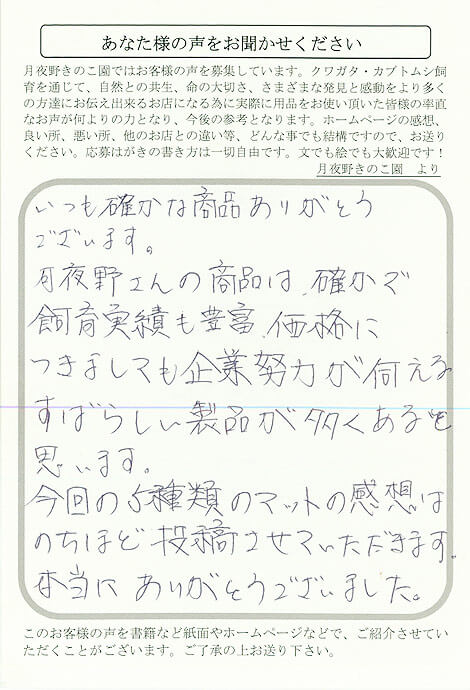 あなた様の声をお聞かせください
月夜野きのこ園ではお客様の声を募集しています。クワガタ・カブトムシ飼
育を通じて、自然との共生、命の大切さ、さまざまな発見と感動をより多く
の方達にお伝え出来るお店になる為に実際に用品をお使い頂いた皆様の率直
なお声が何よりの力となり、今後の参考となります。ホームページの感想、
良い所、悪い所、他のお店との違い等、どんな事でも結構ですので、お送り
ください。応募はがきの書き方は一切自由です。文でも絵でも大歓迎です！
月夜野きのこ園　より
いつも確かな商品ありがとう
ございます。
月夜野さんの商品は、確かで
飼育実績も豊富、価格に
つきましても企業努力が伺える
すばらしい製品が多くあると
思います。
今回の5種類のマットの感想は
のちほど投稿させていただきます。
本当にありがとうございました。
このお客様の声を書籍など紙面やホームページなどで、ご紹介させてい
ただくことがございます。ご了承の上お送り下さい。